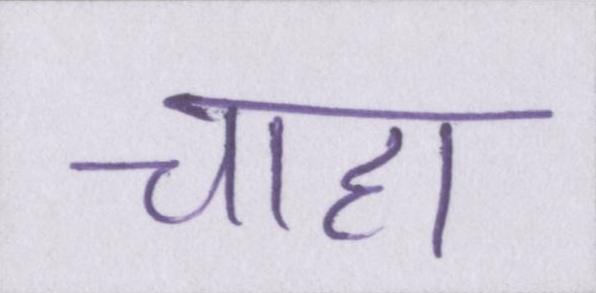 चाहा